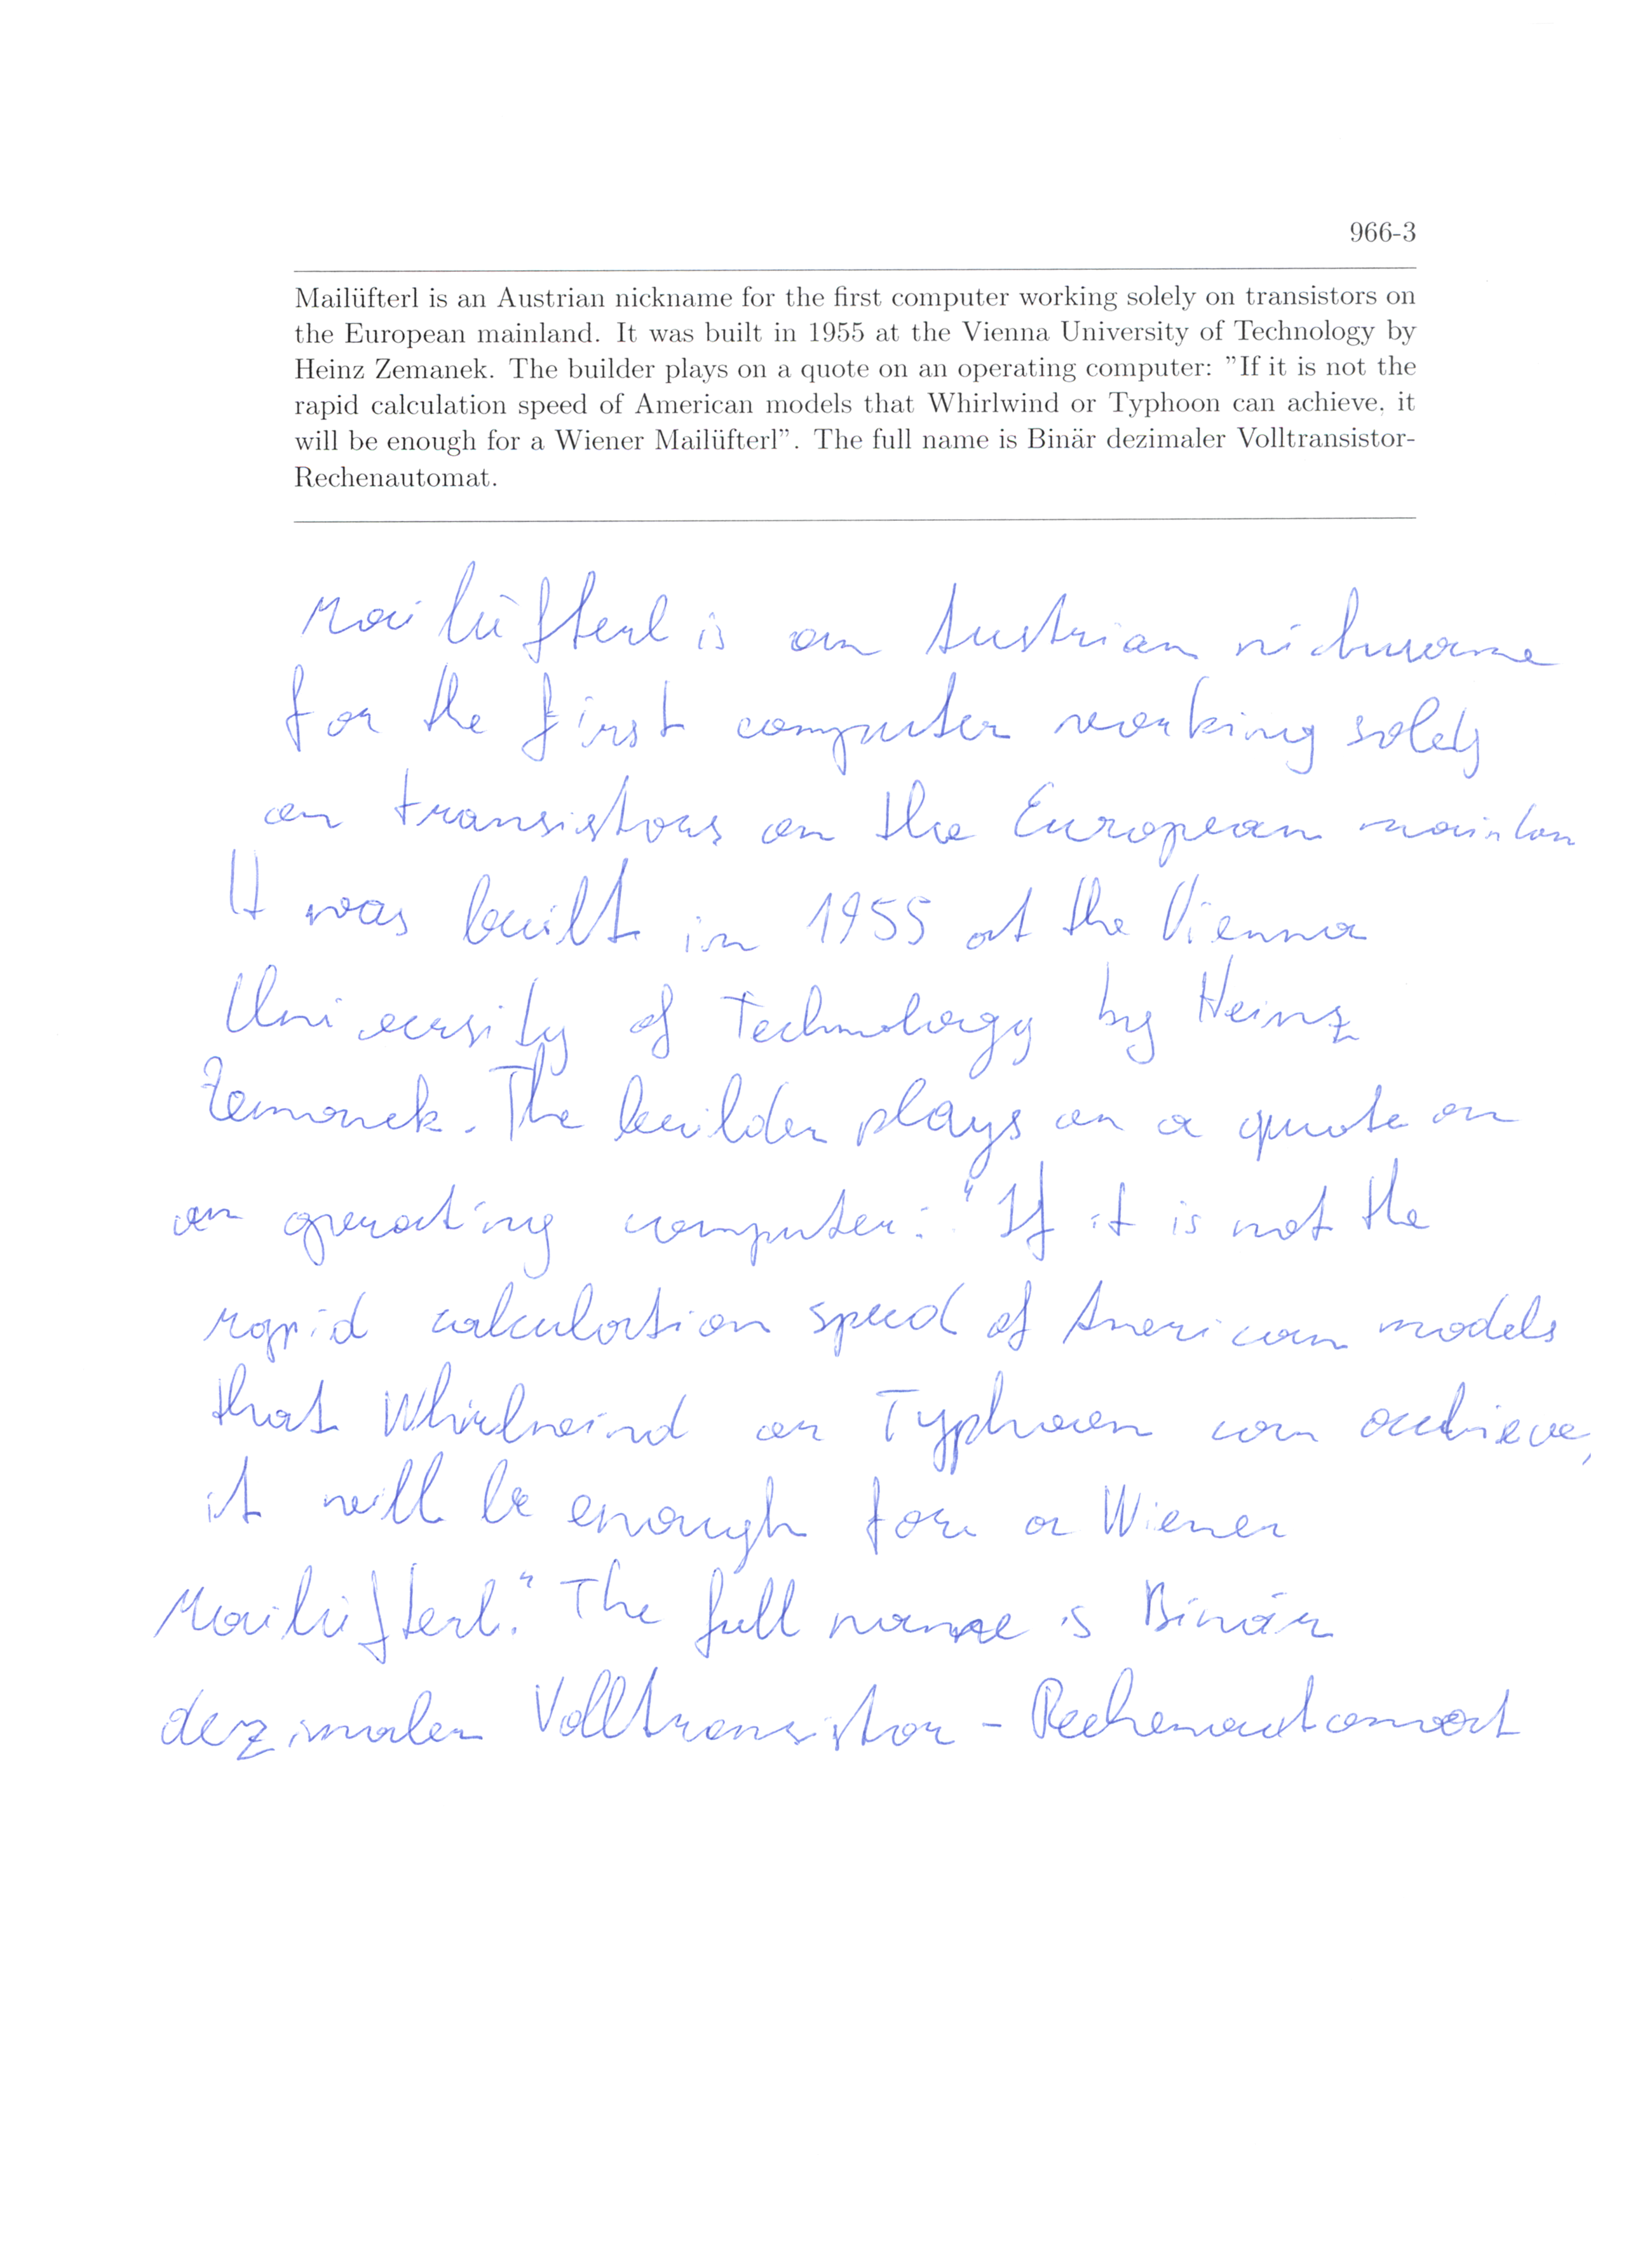 966-3
Mailüfterl is an Austrian nickname for the first computer working solely on transistors on
the European mainland. It was built in 1955 at the Vienna University of Technology by
Heinz Zemanek. The builder plays on a quote on an operating computer: "If it is not the
rapid calculation speed of American models that Whirlwind or Typhoon can achieve, it
will be enough for a Wiener Mailüfterl". The full name is Binär dezimaler Volltransistor-
Rechenautomat.
Mailüfterl is an Austrian nickname
for the first computer working solely
on transistors on the European mainlan
It was built in 1955 at the Vienna
University of Technology by Heinz
Zemanek. The builder plays on a quote on
an operating computer: "If it is not the
rapid calculation speed of American models
that Whirlwind or Typhoon can achieve,
it will be enough for a Wiener
Mailüfterl." The full name is Binär
dezimaler Volltransistor - Rechenautomat